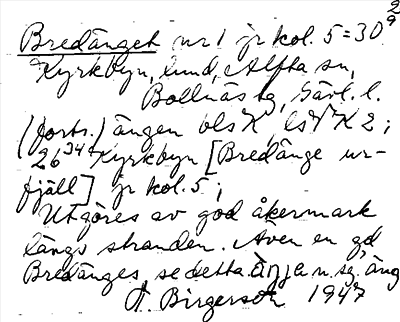 Bredänget nr 1 jr kol. 5 = 30 2/9
Kyrkbyn, lund, Alfta sn,
Bollnäs tg, Gävl. l.
(forts.) ängen bls K, ls V K 2;
26 34 Kyrkbyn [Bredänge ur-
fjäll] jr kol. 5;
Utgöres av god åkermark
längs stranden. Även en gd
Bredänges, se detta. änja n. sg. äng
A. Birgerson 1947